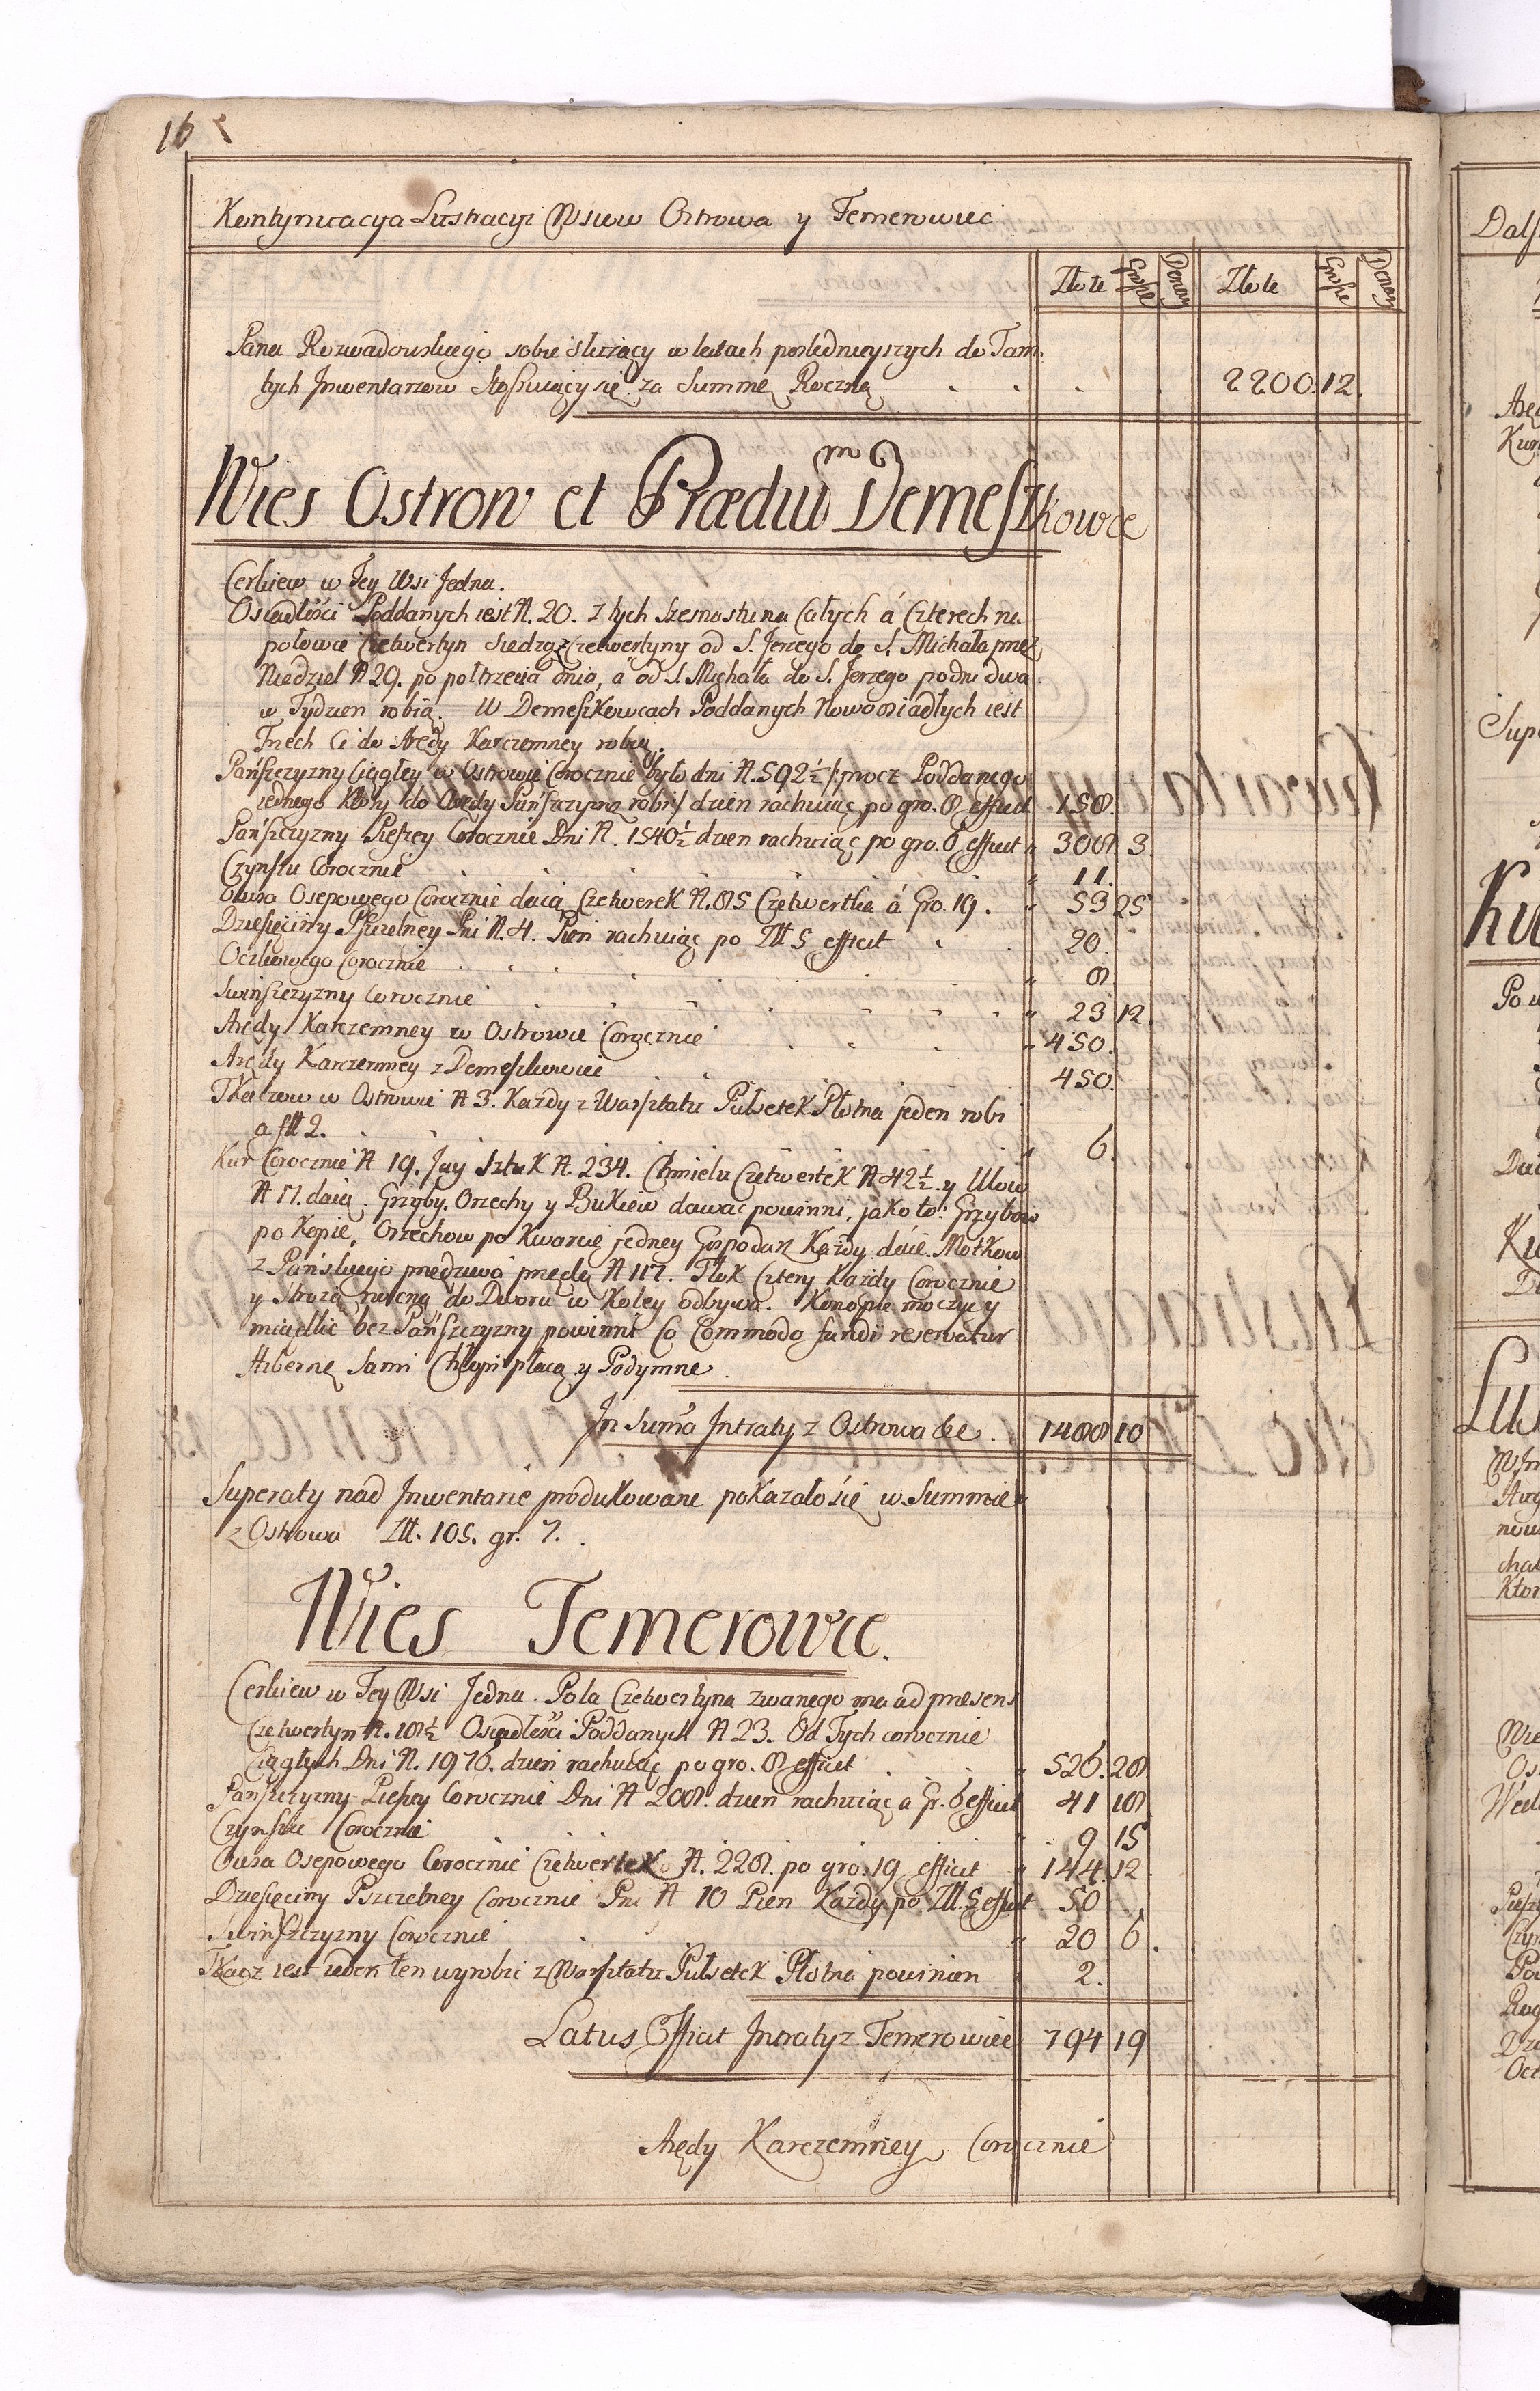 16
Kontynuacya Lustracyi Wsiow Ostrowa y Temerowiec
Złote Grosze Denary Złote Grosze Denary
Pana Rozwadowskiego sobie służący w leciech poslednieyszych do Tam
tych Jnwentarzow Stosuiący się za Summę Roczną 2200. 12.
Wies Ostrow et Prædiũ Demeszkowce
Cerkiew w Tey Wsi Jedna.
Osiadłości Poddanych iest N. 20. z tych szesnastu na Całych á Czterech na
połowie Czetwertyn siedzą z Czetwertyny od S. Jerzego do S. Michała przez
Niedziel N 29. po połtrzecia dnia, á od S. Michała do S. Jerzego po dni dwa
w Tydzien robią. W Demeszkowcach Poddanych Nowoosiadłych iest
Trzech Ci do Arędy Karczemney robią.
Pańszczyzny Ciągłey w Ostrowie Corocznie było dni N. 592½ /: procz Poddanego
iednego Ktory do Arędy Pańszczyznę robi :/ dzien rachuiąc po gro. 8 efficit 158.
Pańszczyzny Pieszey Corocznie Dni N. 1540½ dzien rachuiąc po gro. 6 efficit 308 3.
Czynszu Corocznie 11.
Owsa Osepowego Corocznie daią Czetwerek N. 85 Czetwertka á Gro. 19. 53 25
Dziesięciny Pszczelney Pni N. 4. Pien rachuiąc po Złł 5 efficit 20.
Oczkowego Corocznie 8
Swinszczyzny Corocznie 23 12.
Arędy Karczemney w Ostrowie Corocznie 450.
Arędy Karczemney z Demeszkowiec 450.
Tkaczow w Ostrowie N 3. Każdy z Warsztatu Pułsetek Płotna jeden robi
a fłł 2. 6.
Kur Corocznie N 19. Jay Sztuk N. 234. Chmielu Czetwertek N 42½ y
N 17. daią. Grzyby, Orzechy y Bukiew dawać powinni, jako to: Grzybow
po Kopie, Orzechow po Kwarcie jedney Gospodarz Każdy daie. Motkow
z Pańskiego przędziwa przędą N 117. Tłok Cztery Każdy Corocznie
y Strożą nocną do Dworu w Koley odbywa. Konopie moczyć y
międlić bez Pańszczyzny powinni Co Commodo fundi reservatur
Hibernę Sami Chłopi płacą y Podymne.
Jn Summa Jntraty z Ostrowa &c. 1488 10
Superaty nad Jnwentarze produkowane pokazało się w Summie
z Ostrowa Złł. 105. gr. 7.
Wies Temerowce.
Cerkiew w Tey Wsi Jedna. Pola Czetwertyna zwanego ma ad præsens
Czetwertyn N. 18½ Osiadłości Poddanych N 23. Od Tych corocznie
Ciągłych Dni N. 1976. dzień rachuiąc po gro. 8 efficit 526. 28
Pańszczyzny Pieszey Corocznie Dni N 208. dzien rachuiąc a Gr. 6 efficit 41 18
Czynszu Corocznie 9 15
Owsa Osepowego Corocznie Czetwertek N. 228. po gro. 19 efficit 144. 12
Dziesięciny Pszczelney Corocznie Pni N 10 Pien Każdy po Złł. 5 efficit 50
Swinszczyzny Corocznie 20 6.
Tkacz iest ieden ten wyrobić z Warsztatu Pułsetek Płotna powinien 2.
Latus Efficit Jntraty z Temerowiec 794 19
Arędy Karczemney Corocznie